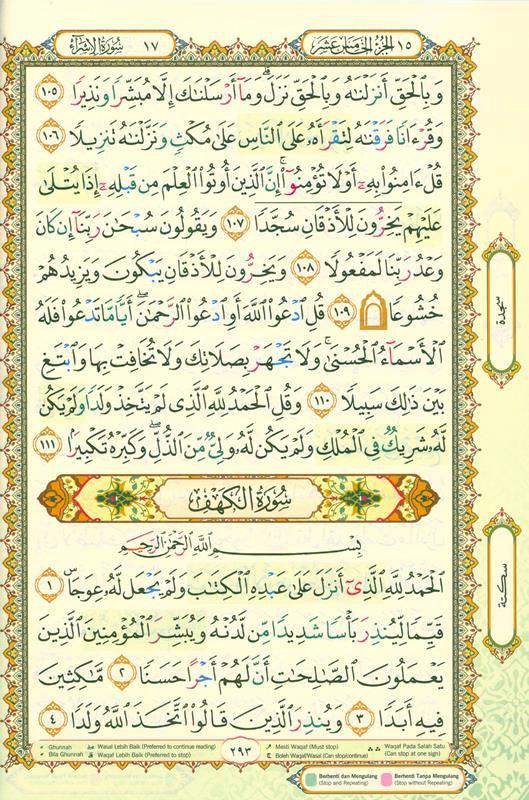 الجزء الخامس عشر ١٥
١٧ سورة الإسراء
وَبِٱلْحَقِّ أَنزَلْنَٰهُ وَبِٱلْحَقِّ نَزَلَ ۗ وَمَآ أَرْسَلْنَٰكَ إِلَّا مُبَشِّرًا وَنَذِيرًا ١٠٥
وَقُرْءَانًا فَرَقْنَٰهُ لِتَقْرَأَهُۥ عَلَى ٱلنَّاسِ عَلَىٰ مُكْثٍ وَنَزَّلْنَٰهُ تَنزِيلًا ١٠٦
قُلْ ءَامِنُوا۟ بِهِۦٓ أَوْ لَا تُؤْمِنُوٓا۟ ۚ إِنَّ ٱلَّذِينَ أُوتُوا۟ ٱلْعِلْمَ مِن قَبْلِهِۦٓ إِذَا يُتْلَىٰ
عَلَيْهِمْ يَخِرُّونَ لِلْأَذْقَانِ سُجَّدًا ١٠٧ وَيَقُولُونَ سُبْحَٰنَ رَبِّنَآ إِن كَانَ
وَعْدُ رَبِّنَا لَمَفْعُولًا ١٠٨ وَيَخِرُّونَ لِلْأَذْقَانِ يَبْكُونَ وَيَزِيدُهُمْ
خُشُوعًا ۩ ١٠٩ قُلِ ٱدْعُوا۟ ٱللَّهَ أَوِ ٱدْعُوا۟ ٱلرَّحْمَٰنَ ۖ أَيًّا مَّا تَدْعُوا۟ فَلَهُ
ٱلْأَسْمَآءُ ٱلْحُسْنَىٰ ۚ وَلَا تَجْهَرْ بِصَلَاتِكَ وَلَا تُخَافِتْ بِهَا وَٱبْتَغِ
بَيْنَ ذَٰلِكَ سَبِيلًا ١١٠ وَقُلِ ٱلْحَمْدُ لِلَّهِ ٱلَّذِى لَمْ يَتَّخِذْ وَلَدًا وَلَمْ يَكُن
لَّهُۥ شَرِيكٌ فِى ٱلْمُلْكِ وَلَمْ يَكُن لَّهُۥ وَلِىٌّ مِّنَ ٱلذُّلِّ ۖ وَكَبِّرْهُ تَكْبِيرًۢا ١١١
سجدة
سورة الكهف
بِسْمِ ٱللَّهِ ٱلرَّحْمَٰنِ ٱلرَّحِيمِ
ٱلْحَمْدُ لِلَّهِ ٱلَّذِىٓ أَنزَلَ عَلَىٰ عَبْدِهِ ٱلْكِتَٰبَ وَلَمْ يَجْعَل لَّهُۥ عِوَجَا ۜ ١
قَيِّمًا لِّيُنذِرَ بَأْسًا شَدِيدًا مِّن لَّدُنْهُ وَيُبَشِّرَ ٱلْمُؤْمِنِينَ ٱلَّذِينَ
يَعْمَلُونَ ٱلصَّٰلِحَٰتِ أَنَّ لَهُمْ أَجْرًا حَسَنًا ٢ مَّٰكِثِينَ
فِيهِ أَبَدًا ٣ وَيُنذِرَ ٱلَّذِينَ قَالُوا۟ ٱتَّخَذَ ٱللَّهُ وَلَدًا ٤
سكتة
Ghunnah
Bila Ghunnah
Wasal Lebih Baik (Preferred to continue reading)
Waqaf Lebih Baik (Preferred to stop)
٢٩٣
Mesti Waqaf (Must stop)
Boleh Waqaf/Wasal (Can stop/continue)
Waqaf Pada Salah Satu
(Can stop at one sign)
Berhenti dan Mengulang
(Stop and Repeating)
Berhenti Tanpa Mengulang
(Stop without Repeating)